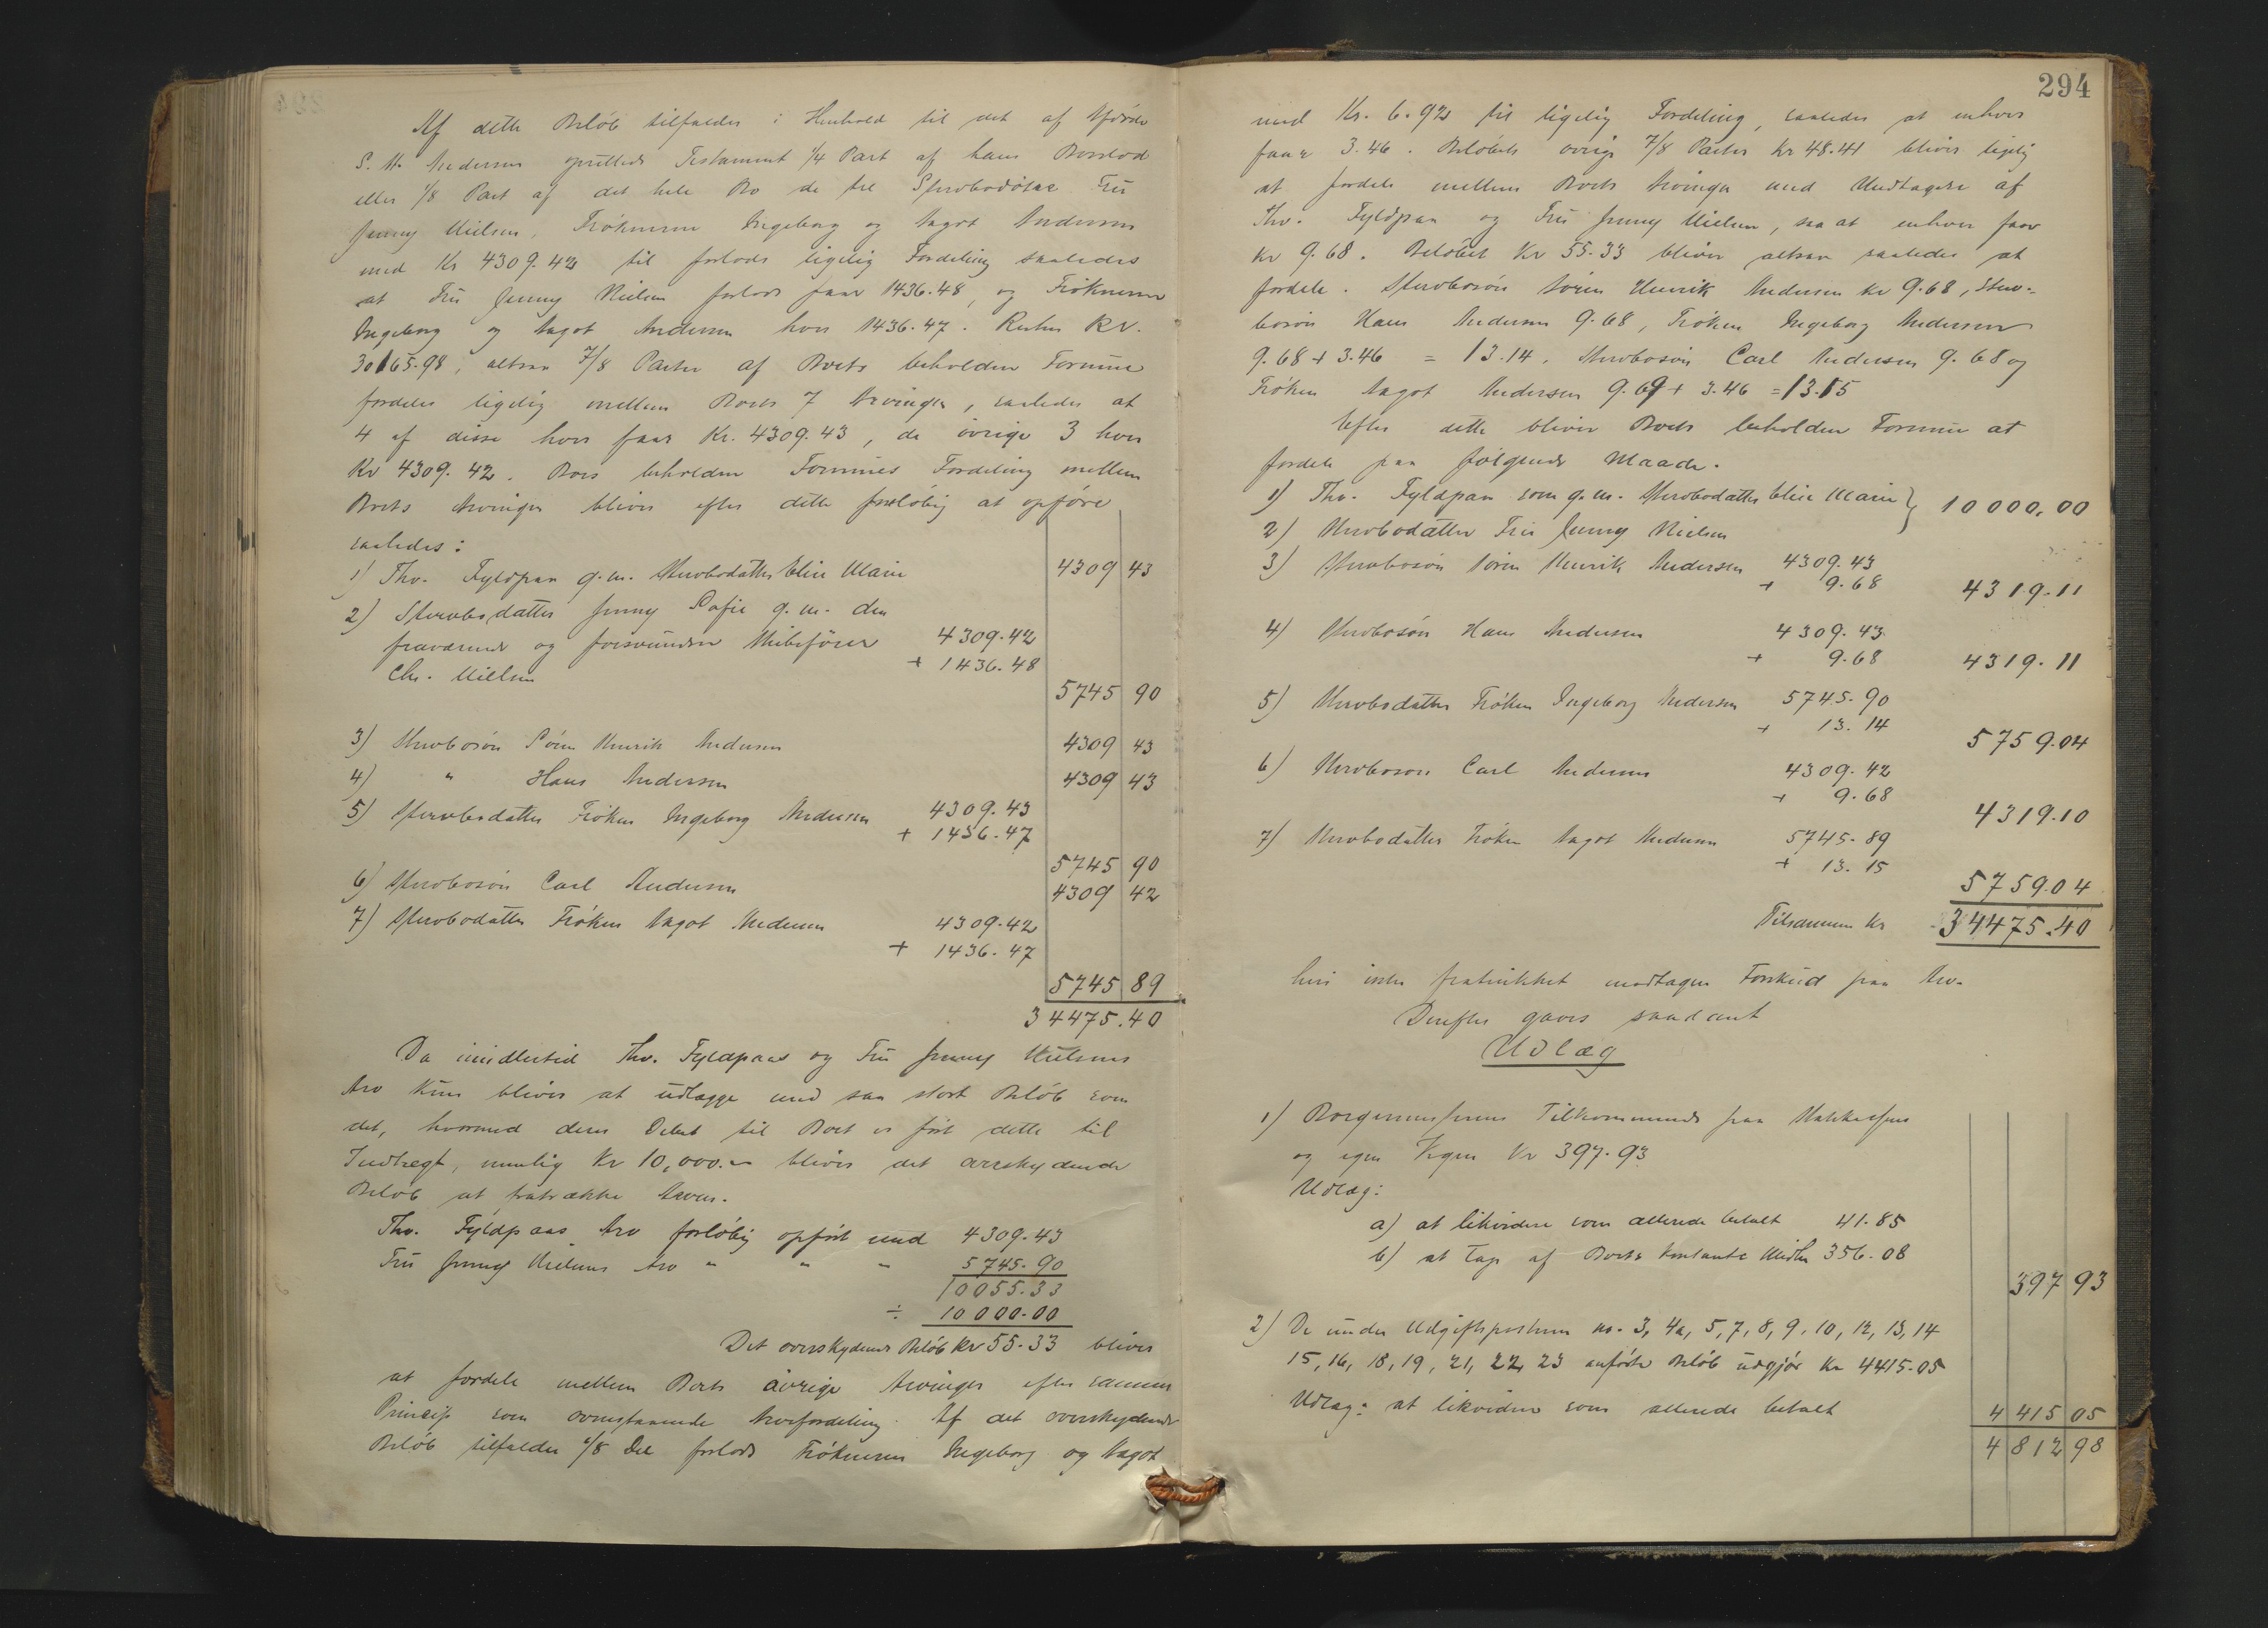 Af dette Beløb tilfalder i Henhold til det af Afdøde
S. H. Andersen oprettede Testament 1/4 Part af hans Boslod
eller 1/8 Part af det hele Bo de tre Stervbodøtre Fru
Jenny Nielsen, Frøknerne Ingeborg og Aagot Andersen
med Kr 4309.42 til forlods ligelig Fordeling saaledes
at Fru Jenny Nielsen forlods faar 1436.48, og Frøknerne
Ingeborg og Aagot Andersen hver 1436.47. Resten Kr.
30165.98, altsaa 7/8 Parter af Boets beholdne Formue
fordeles ligelig mellem Boets 7 Arvinger, saaledes at
4 af disse hver faar Kr. 4309.43, de øvrige 3 hver
Kr 4309.42. Boets beholdne Formues Fordeling mellem
Boets Arvinger bliver efter dette foreløbig at opføre
saaledes:
1) Thv. Fyldpaa g.m. Stervbodatter Elise Marie 4309 43
2) Stervbodatter Jenny Sofie g.m. den
fraværende og forsvundne Skibsfører 4309.42
Chr. Nielsen + 1436.48
5745 90
3) Stervbosøn Søren Henrik Andersen 4309 43
4) " Hans Andersen 4309 43
5) Stervbodatter Frøken Ingeborg Andersen 4309.43
+ 1436.47
5745 90
6) Stervbosøn Carl Andersen 4309 42
7) Stervbodatter Frøken Aagot Andersen 4309.42
+ 1436.47
5745 89
34475.40
Da imidlertid Thv. Fyldpaas og Fru Jenny Nielsens
Arv kun bliver at udlægge med saa stort Beløb som
det, hvormed deres Debet til Boet er ført dette til
Indtægt, nemlig Kr 10,000.- bliver det overskydende
Beløb at fratrække Arven.
Thv. Fyldpaas Arv foreløbig opført med 4309.43
Fru Jenny Nielsens Arv " " " 5745.90
10055.33
÷ 10000.00
Det overskydende Beløb Kr 55.33 bliver
at fordele mellem Boets øvrige Arvinger efter samme
Princip som ovenstaaende Arvefordeling. Af det overskydende
Beløb tilfalder 1/8 Del forlods Frøknerne Ingeborg og Aagot
294
med Kr. 6.92 til ligelig Fordeling, saaledes at enhver
faar 3.46. Beløbets øvrige 7/8 Parter Kr 48.41 bliver ligelig
at fordele mellem Boets Arvinger med Undtagelse af
Thv. Fyldpaa og Fru Jenny Nielsen, saa at enhver faar
Kr 9.68. Beløbet Kr 55.33 bliver altsaa saaledes at
fordele. Stervbosøn Søren Henrik Andersen Kr 9.68, Sterv-
bosøn Hans Andersen 9.68, Frøken Ingeborg Andersen
9.68 + 3.46 = 13.14. Stervbosøn Carl Andersen 9.68 og
Frøken Aagot Andersen 9.69 + 3.46 = 13.15
Efter dette bliver Boets beholdne Formue at
fordele paa følgende Maade.
1) Thv. Fyldpaa som g.m. Stervbodatter Elise Marie } 10000.00
2) Stervbodatter Fru Jenny Nielsen
3) Stervbosøn Søren Henrik Andersen 4309.43
+ 9.68 4319.11
4) Stervbosøn Hans Andersen 4309.43
+ 9.68 4319.11
5) Stervbodatter Frøken Ingeborg Andersen 5745.90
+ 13.14
5759.04
6) Stervbosøn Carl Andersen 4309.42
+ 9.68
4319.10
7) Stervbodatter Frøken Aagot Andersen 5745.89
+ 13.15
5759.04
Tilsammen Kr 34475.40
heri ikke fratrukket modtagne Forskud paa Arv.
Derefter gaves saadant
Udlæg
1) Tilkommende paa
og egne Vegne Kr 397.93
Udlæg:
a) at likvidere som allerede betalt 41.85
b) at tage af Boets kontante Midler 356.08
397 93
2) De under Udgiftsposterne no. 3, 4a, 5, 7, 8, 9, 10, 12, 13, 14
15, 16, 18, 19, 21, 22, 23 anførte Beløb udgjør Kr 4415.05
Udlæg: at likvidere som allerede betalt 4 415 05
4 812 98